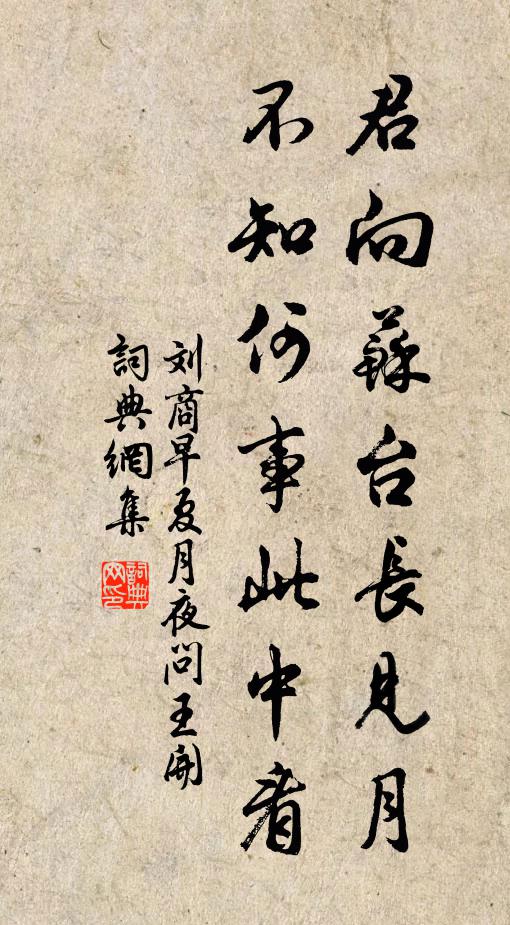 君向蘇台長見月
不知何事此中看
刘商早夏月夜问王開
詞典網集
詞典
网印